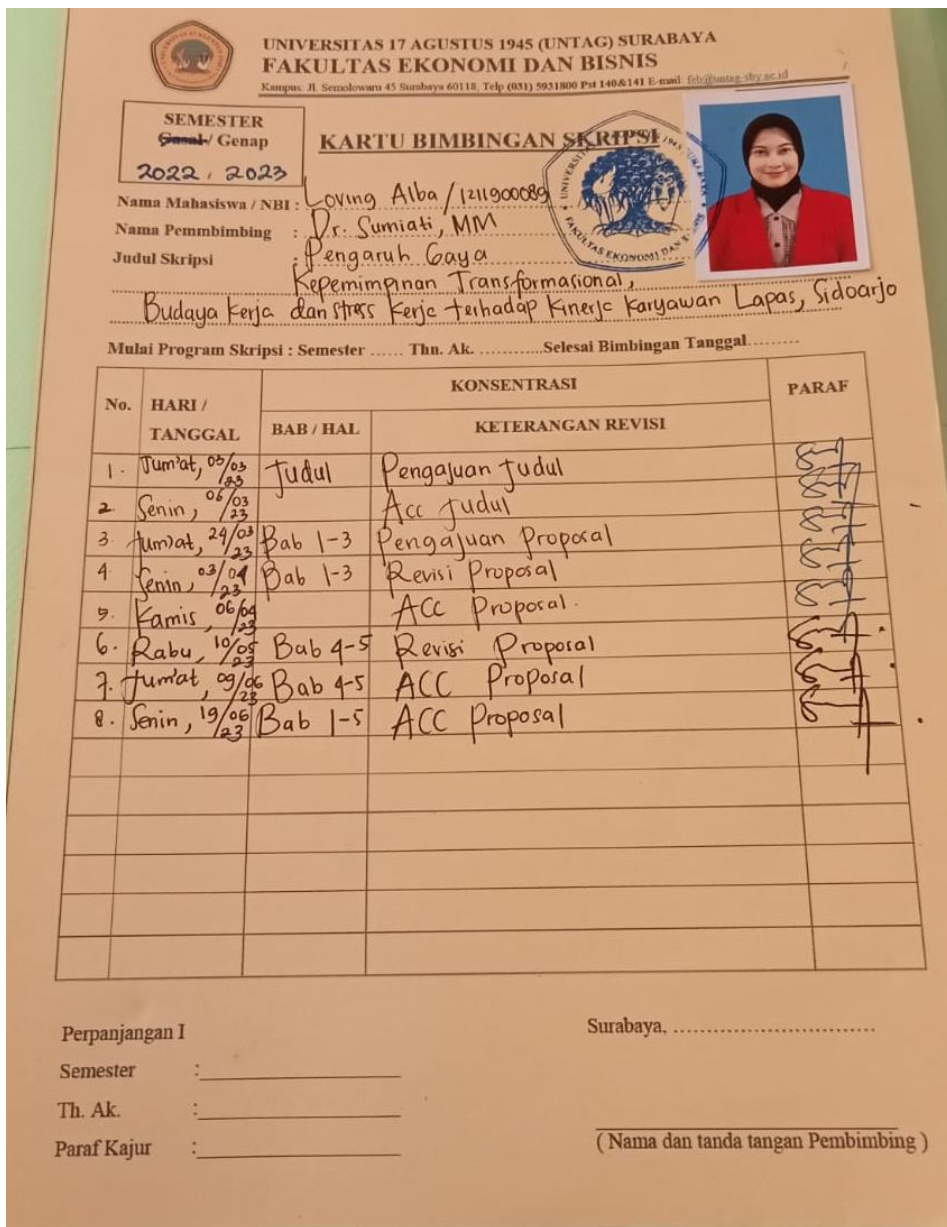 UNIVERSITAS 17 AGUSTUS 1945 (UNTAG) SURABAYA
FAKULTAS EKONOMI DAN BISNIS
Kampus: Jl. Semolowaru 45 Surabaya 60118, Telp (031) 5931800 Pst 140&141 E-mail: feb@untag-sby.ac.id
SEMESTER
Gasal / Genap
2022, 2023
KARTU BIMBINGAN SKRIPSI
Nama Mahasiswa / NBI : Loving Alba / 1211900089
Nama Pemmbimbing : Dr. Sumiati, MM
Judul Skripsi : Pengaruh Gaya
Kepemimpinan Transformasional,
Budaya Kerja dan stress Kerja terhadap Kinerja Karyawan Lapas, Sidoarjo
Mulai Program Skripsi : Semester ...... Thn. Ak. ............Selesai Bimbingan Tanggal.........
No. HARI / TANGGAL KONSENTRASI PARAF
BAB / HAL KETERANGAN REVISI
1. Jum'at, 03/03/23 Judul Pengajuan Judul
2. Senin, 06/03/23 Acc Judul
3. Jum'at, 24/03/23 Bab 1-3 Pengajuan Proposal
4. Senin, 03/04/23 Bab 1-3 Revisi Proposal
5. Kamis, 06/04/23 ACC Proposal.
6. Rabu, 10/05/23 Bab 4-5 Revisi Proposal
7. Jum'at, 09/06/23 Bab 4-5 ACC Proposal
8. Senin, 19/06/23 Bab 1-5 ACC Proposal
Perpanjangan I
Semester :
Th. Ak. :
Paraf Kajur :
Surabaya, .............................
( Nama dan tanda tangan Pembimbing )